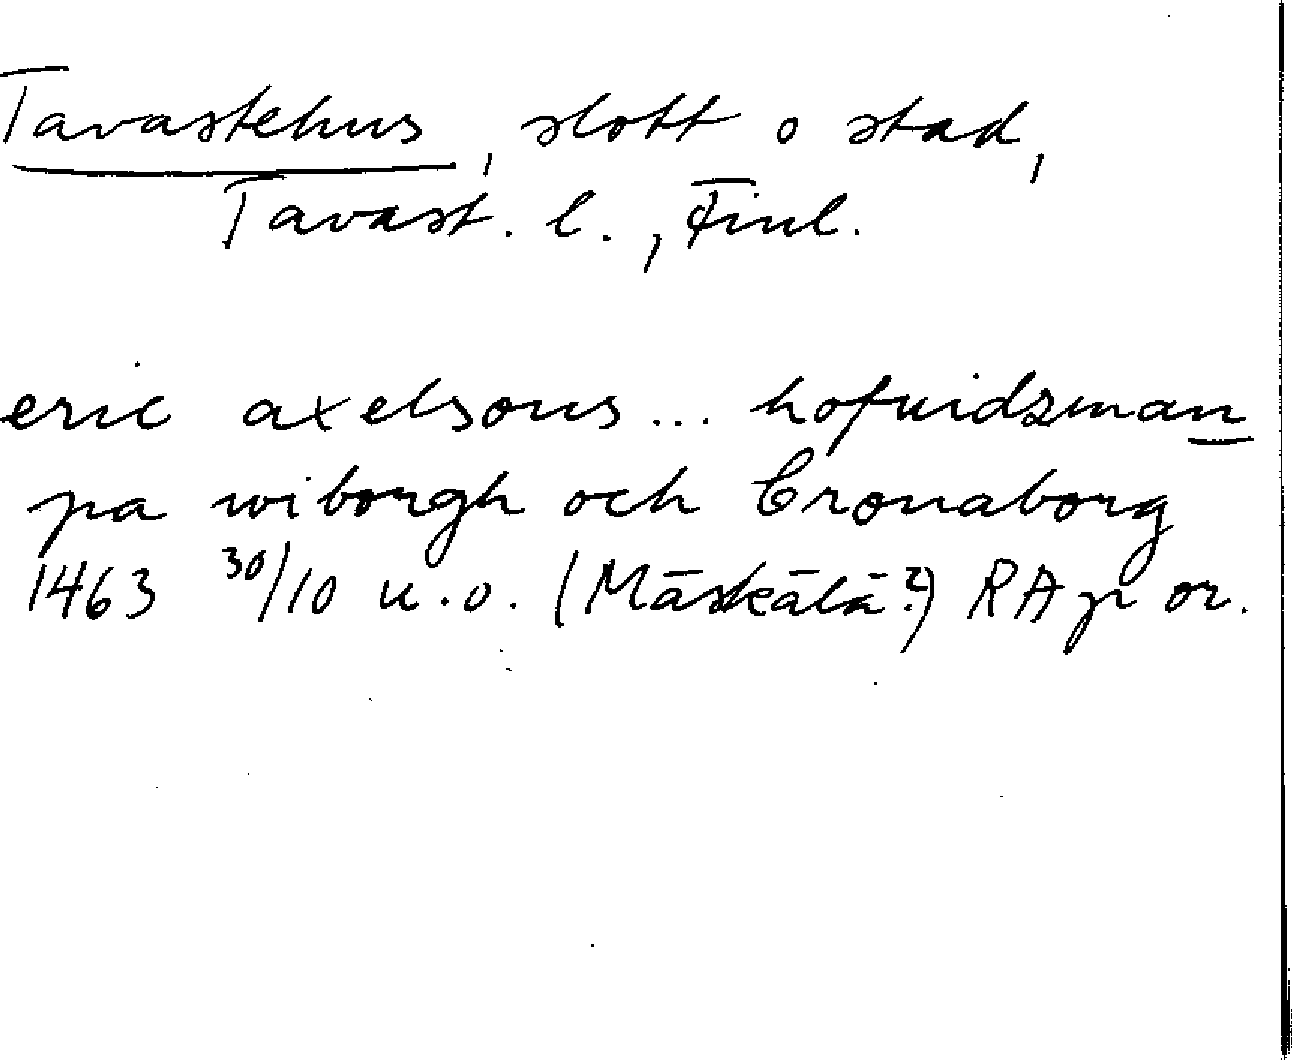 Tavastehus, slott o stad,
Tavast. l., Finl.
eric axelsons... hofuidzman
pa wiborgh och Cronaborg
1463 30/10 u.o. (Mäskälä?) RA p or.